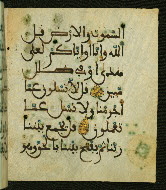 السموت والارض قل
الله وانا او اياكم لعلى
هدى او فى ضلل
مبين قل لا تسلون عما
اجرمنا ولا نسل عما
تعملون قل يجمع بيننا
ربنا ثم يفتح بيننا بالحق وهو